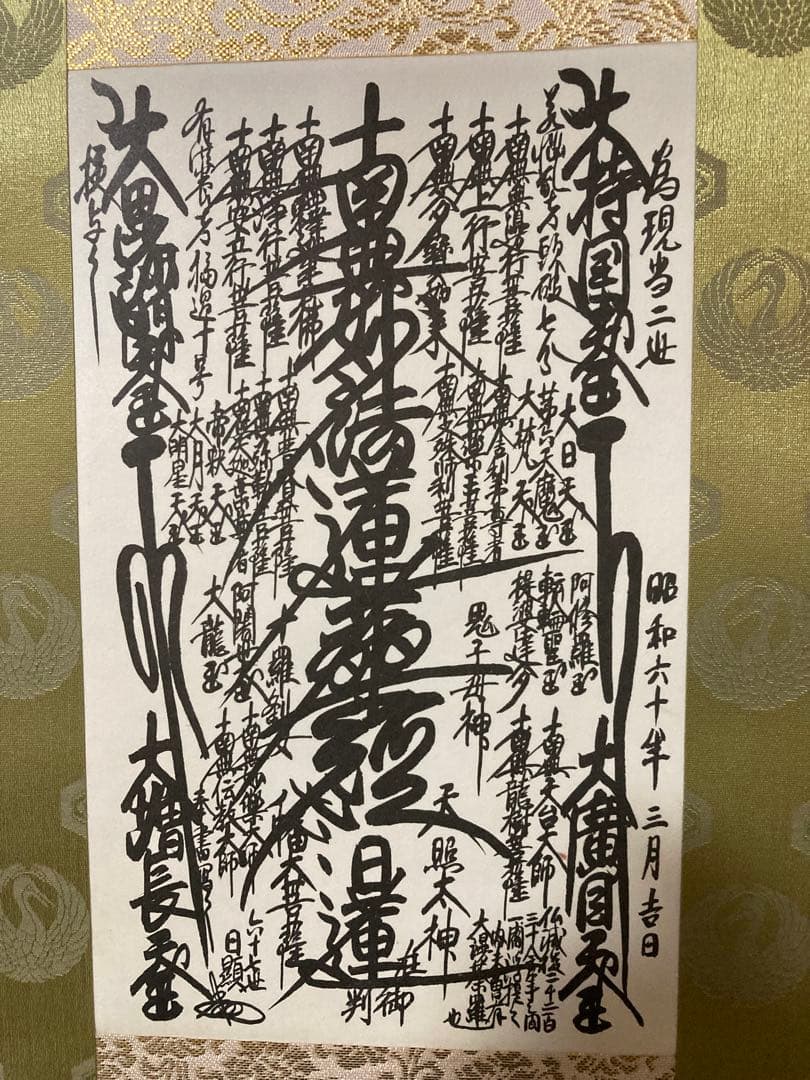 為現当二世
昭和六十年三月吉日
大持国天王
大廣目天王
若悩乱者頭破七分
大日天王
第六天魔王
大梵天王
阿修羅王
轉輪聖王
提婆達多
南無天台大師
南無龍樹菩薩
仏滅後二千二百
三十余年之間
一閻浮提之
内未曽有
大漫荼羅
也
南無無邊行菩薩
南無上行菩薩
南無多寶如来
南無舎利弗尊者
南無薬王菩薩
南無文殊師利菩薩
鬼子母神
天照太神
南無妙法蓮華経
日蓮
在御
判
南無釋迦牟尼佛
南無浄行菩薩
南無安立行菩薩
南無普賢菩薩
南無弥勒菩薩
南無大迦葉尊者
帝釈天王
大月天王
大明星天王
十羅刹女
阿闍世王
大龍王
八幡大菩薩
南無妙楽大師
南無伝教大師
奉書写之
六十七世
日顕
有供養者福過十号
大毘沙門天王
大増長天王
授与之